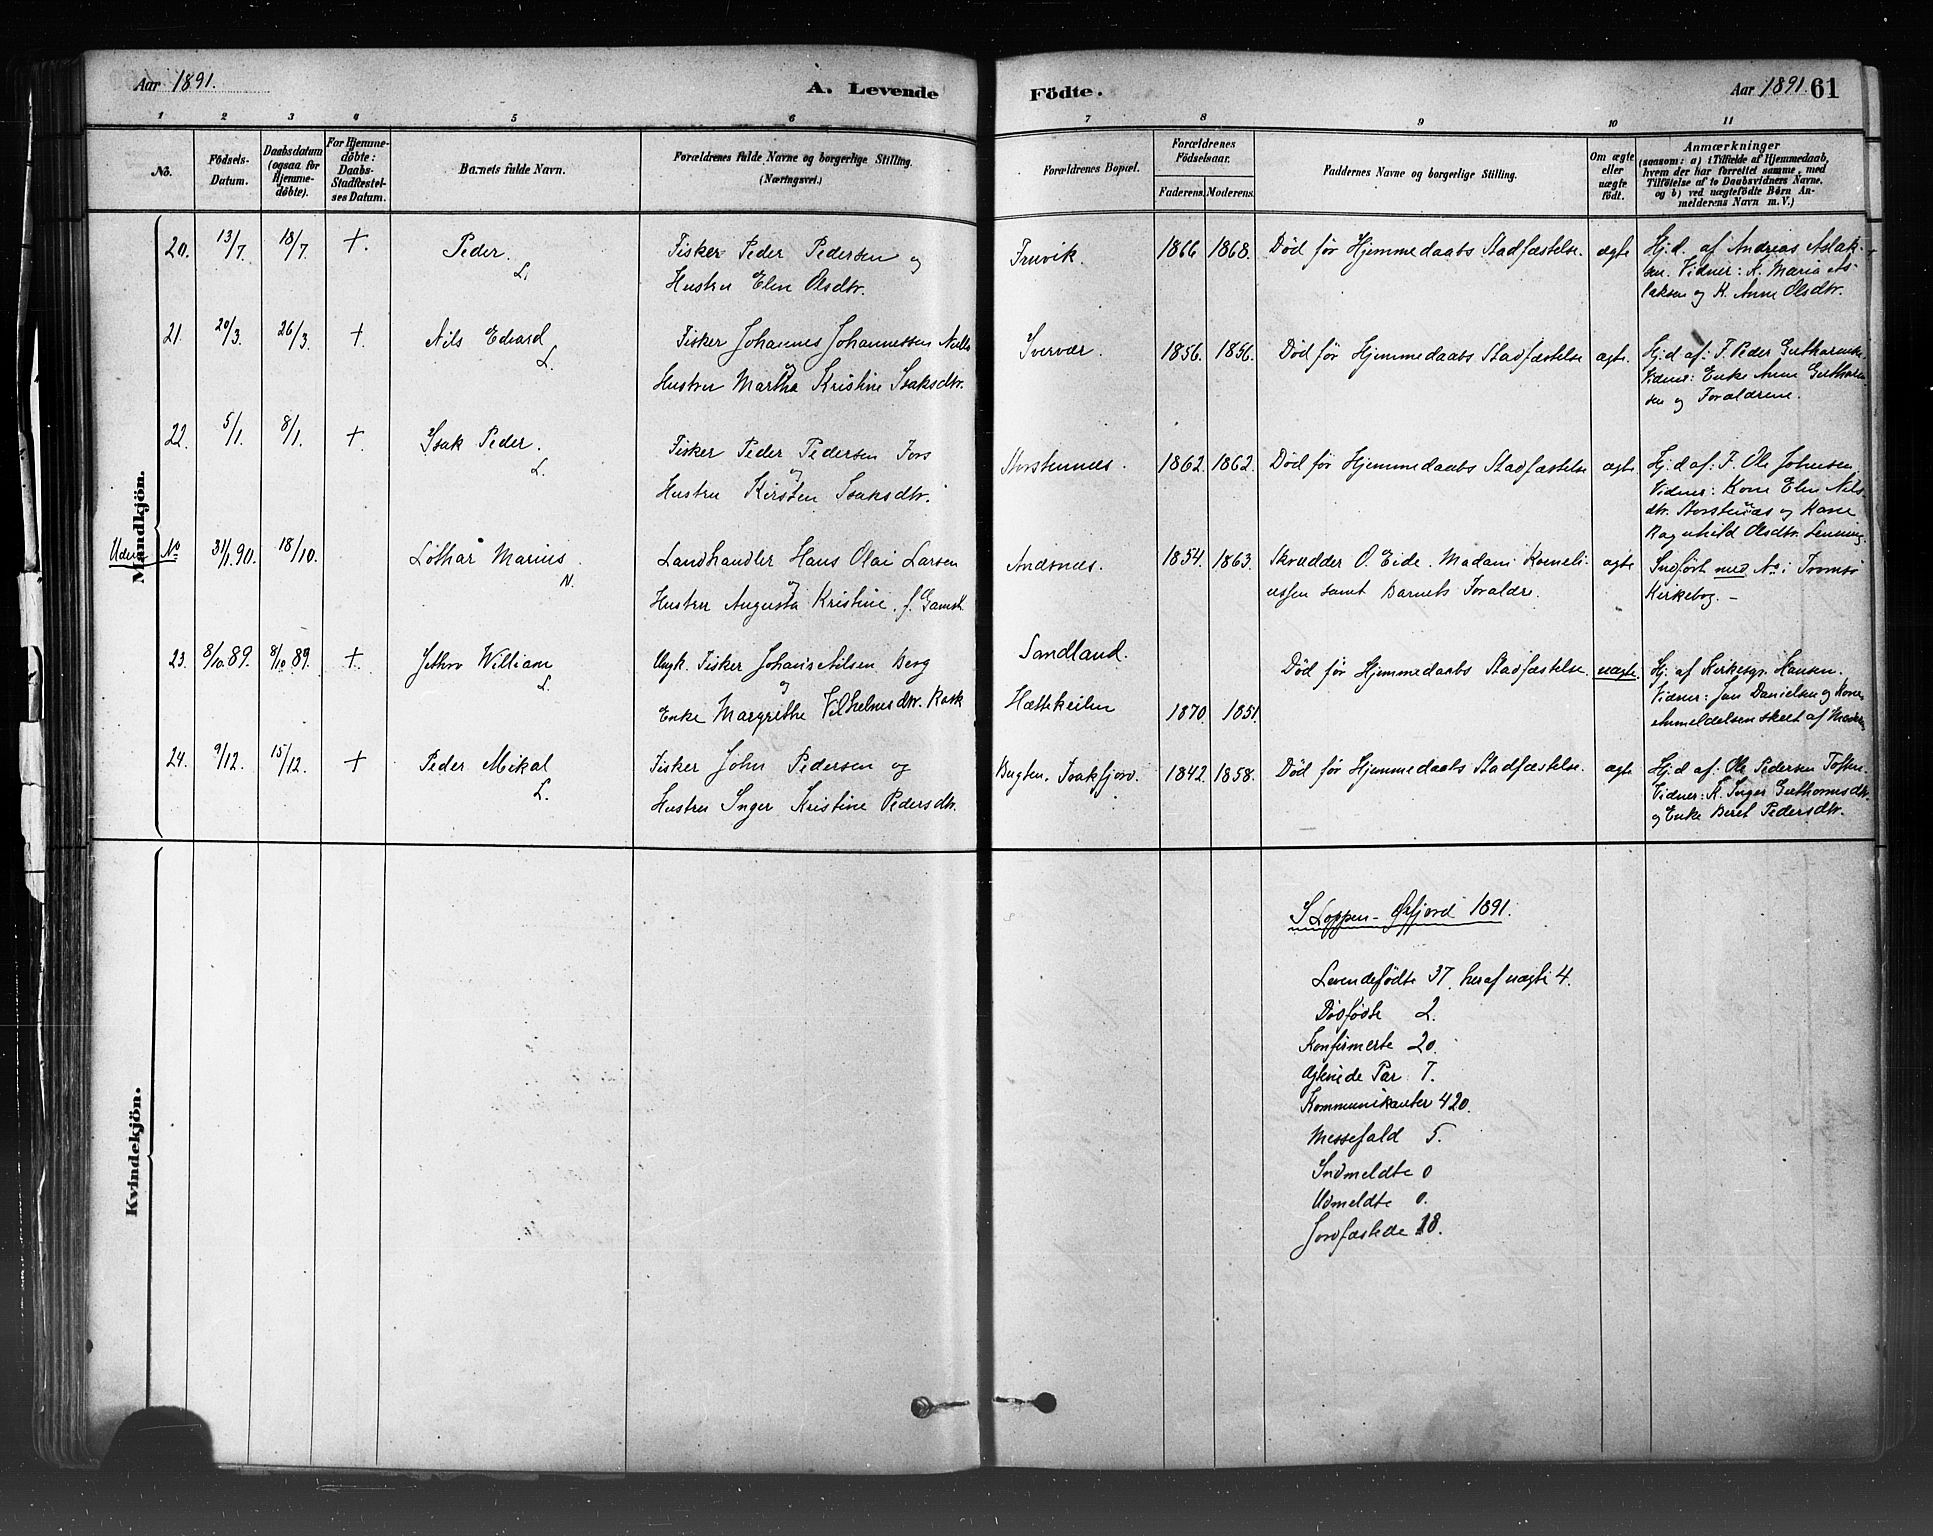 Aar 1891.
A. Levende
Födte.
Aar 1891. 61
1 2 3 4 5 6 7 8 9 10 11
No.
Födsels-Datum.
Daabsdatum (ogsaa for Hjemme-döbte).
For Hjemme-döbte: Daabs-Stadfæstel-ses Datum.
Barnets fulde Navn.
Forældrenes fulde Navne og borgerlige Stilling.
(Næringsvei.)
Forældrenes Bopæl.
Forældrenes Födselsaar.
Faderens. Moderens.
Faddernes Navne og borgerlige Stilling.
Om ægte eller uægte födt.
Anmærkninger
(saasom: a) i Tilfælde af Hjemmedaab,
hvem der har forrettet samme, med
Tilföielse af to Daabsvidners Navne,
og b) ved uægtefödte Börn An-
melderens Navn m. V.)
Mandkjön.
20. 13/7 18/7 +. Peder. L. Fisker Peder Pedersen og
Hustru Elen Olsdtr.
Fruvik. 1866 1868. Død før Hjemmedaabs Stadfæstelse. ægte
Hj.d. af Andreas Aslak-
sen. Vidner: K. Maria As-
laksen og K. Anne Olsdtr.
21. 20/3 26/3 + Nils Edvard L. Fisker Johannes Johannessen
og
Hustru Martha Kristine Isaksdtr.
Svervær. 1856. 1856. Død før Hjemmedaabs Stadfæstelse ægte.
Hj.d af: F. Peder
Vidner: Enke Anne
sen og Forældrene.
22. 5/1. 8/1. + Isak Peder. L. Fisker Peder Pedersen Fors
og
Hustru Kirsten Isaksdtr.
Storstennes. 1862. 1862. Død før Hjemmedaabs Stadfæstelse ægte
Hj.d af: F. Ole Johnsen
Vidner: Kone Elen Nils-
dtr. Storstennes og Kone
Ragnhild Olsdtr.
Uden No 31/1.90. 18/10. Lothar Marius. N. Landhandler Hans Olai Larsen
og
Hustru Augusta Kristine, f.
Andsnes. 1854. 1863. Skrædder O. Eide. Madam Korneli-
ussen samt Barnets Forældre. ægte
Indført med No i Tromsø
Kirkebog. –
23. 8/10 89. 8/10 89. + Jethro William L. Ungk. Fisker Johans Nilsen Berg
og
Enke Margrethe Vilhelmsdtr. Rask
Sandland.
Hættekeilen 1870. 1851. Død før Hjemmedaabs Stadfæstelse. uægte.
Hj. af Kirkesgr. Hansen.
Vidner: Jan Danielsen og Kone
Anmeldelsen skeet af Moderen
24. 9/12. 15/12. + Peder Mikal L. Fisker John Pedersen og
Hustru Inger Kristine Pedersdtr.
Bugten, 1842. 1858. Død før Hjemmedaabs Stadfæstelse. ægte
Hj.d af: Ole Pedersen Toften
Vidner: K. Inger Guthormsdtr.
og Enke Beret Pedersdtr.
Kvindekjön.
I Loppen- Øxfjord 1891.
Levendefødte 37, heraf uægte 4.
Dødfødte 2.
Konfirmerte 20.
Ægteviede Par 7.
Kommunikanter 420.
Messefald 5.
Indmeldte 0
Udmeldte 0.
Jordfæstede 18.